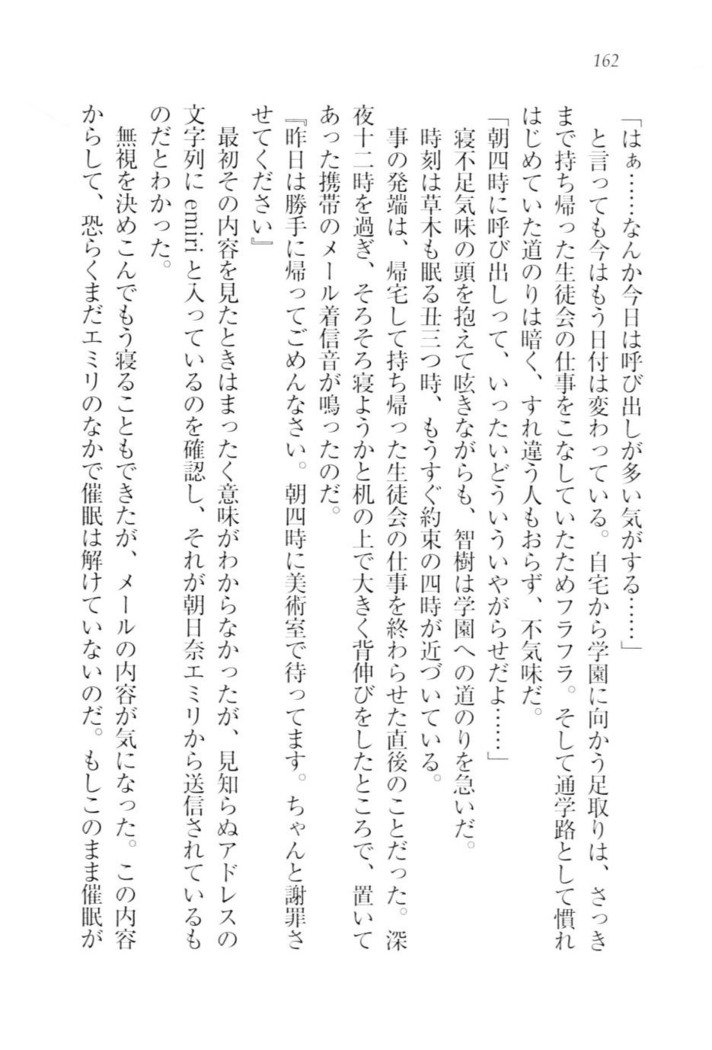 162
「はぁ……なんか今日は呼び出しが多い気がする……」
と言っても今はもう日付は変わっている。自宅から学園に向かう足取りは、さっき
まで持ち帰った生徒会の仕事をこなしていたためフラフラ。そして通学路として慣れ
はじめていた道のりは暗く、すれ違う人もおらず、不気味だ。
「朝四時に呼び出しって、いったいどういういやがらせだよ……」
寝不足気味の頭を抱えて呟きながらも、智樹は学園への道のりを急いだ。
時刻は草木も眠る丑三つ時、もうすぐ約束の四時が近づいている。
事の発端は、帰宅して持ち帰った生徒会の仕事を終わらせた直後のことだった。深
夜十二時を過ぎ、そろそろ寝ようかと机の上で大きく背伸びをしたところで、置いて
あった携帯のメール着信音が鳴ったのだ。
『昨日は勝手に帰ってごめんなさい。朝四時に美術室で待ってます。ちゃんと謝罪さ
せてください』
最初その内容を見たときはまったく意味がわからなかったが、見知らぬアドレスの
文字列にemiriと入っているのを確認し、それが朝日奈エミリから送信されているも
のだとわかった。
無視を決めこんでもう寝ることもできたが、メールの内容が気になった。この内容
からして、恐らくまだエミリのなかで催眠は解けていないのだ。もしこのまま催眠が